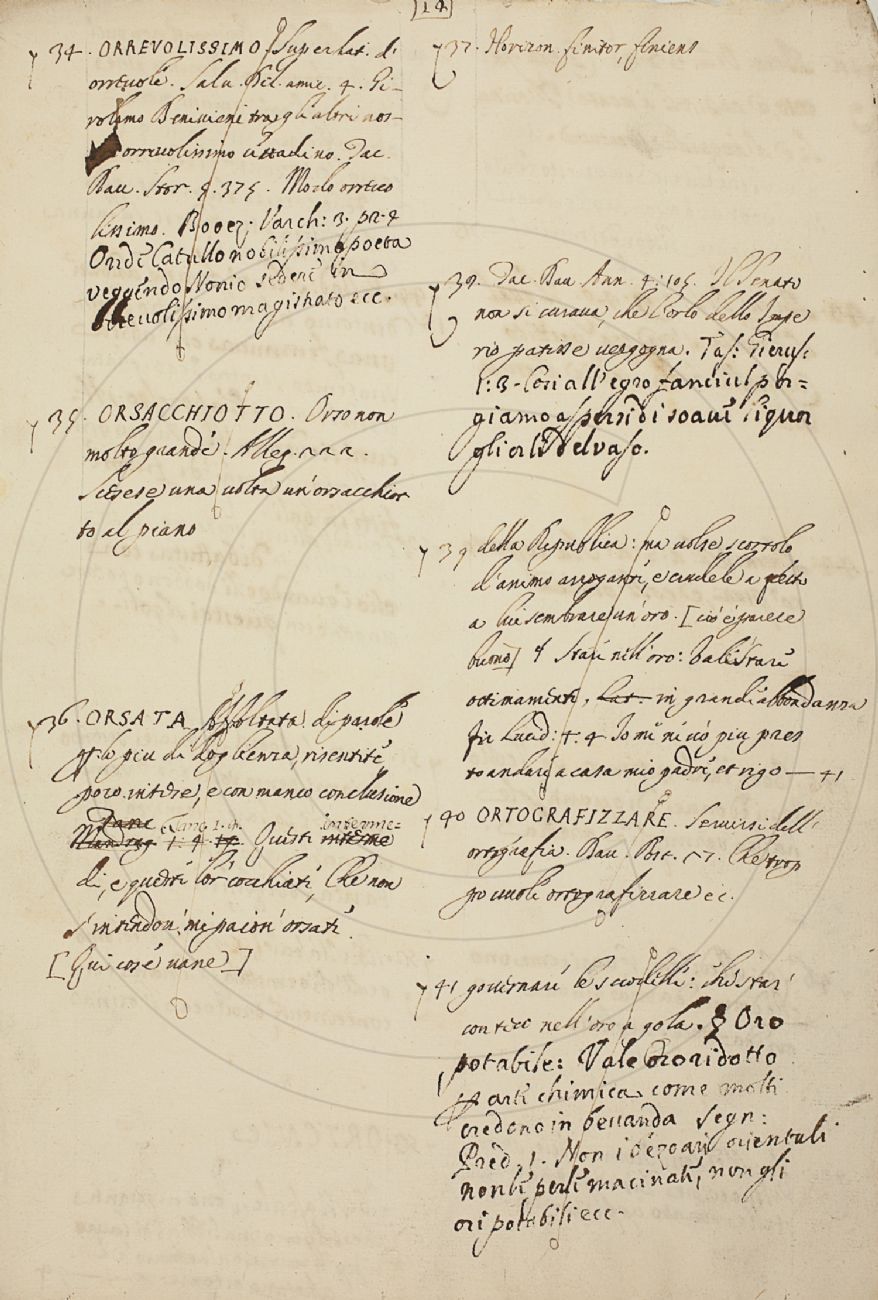 [14]
34. ORREVOLISSIMO. Superlat. di
orrevole. Salv.
rolamo Benivieni tra gli altri nos-
orrevolissimo cittadino. Dac.
Dav. Stor. 4. 375. Modo orrevo
lissimo. Boez. Varch: 3. pr. 4
Onde Catullo nobilissimo poeta
veggendo Nonio sedere in
orrevolissimo magistrato ecc.
35. ORSACCHIOTTO. Orso non
molto grande. Alleg.
Scese una volta un'orsacchiot
to al piano
36. ORSATA di parole
p lo piu di doglienza, risentite,
poco intese, e con manco conclusione
1. 4. Questi
di, e questi lor cocchiati, Che non
s'intendon' mi paion' orsate
[Qui cose vane]
37. Horizon. finitor, finiens
38. Dac. Dav. Ann. 4. 105. Il Senato
non si curava, che l'orlo dello Impe
rio patisse vergogna. Tas: Gierus:
1: 3 - Cosi all'egro fanciul por=
giamo aspersi di soave liquor
gli orli del vaso.
39 della Repubblica: ma volse
d'animo arrogante, e crudele a
a lui sembrare un'oro. [cioè parere
buono] § Stare nell'oro: Vale Stare
ottimamente, in grande abbondanza
Fir Lucid: 4. 4 Io me ne vo piu pres
to andare a casa mio padre, et rigo — 41
40 ORTOGRAFIZZARE. Servirsi dell'
ortografia. Dav. Post. Che trop
po vuole ortografizzare ec.
41 governare le scodelle: ch'è star'
con teco nell'oro a gola. § Oro
potabile: Vale Oro ridotto
p arte chimica come molti
credono in bevanda Segn:
Pred. 1. Non i bezoari orientali
non le perle macinate, non gli
ori potabili ecc.